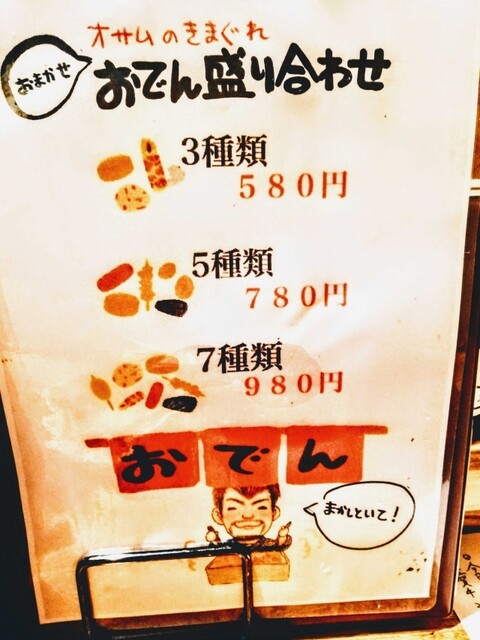 オサムのきまぐれ
おまかせ
おでん盛り合わせ
3種類
580円
5種類
780円
7種類
980円
おでん
まかしといて!